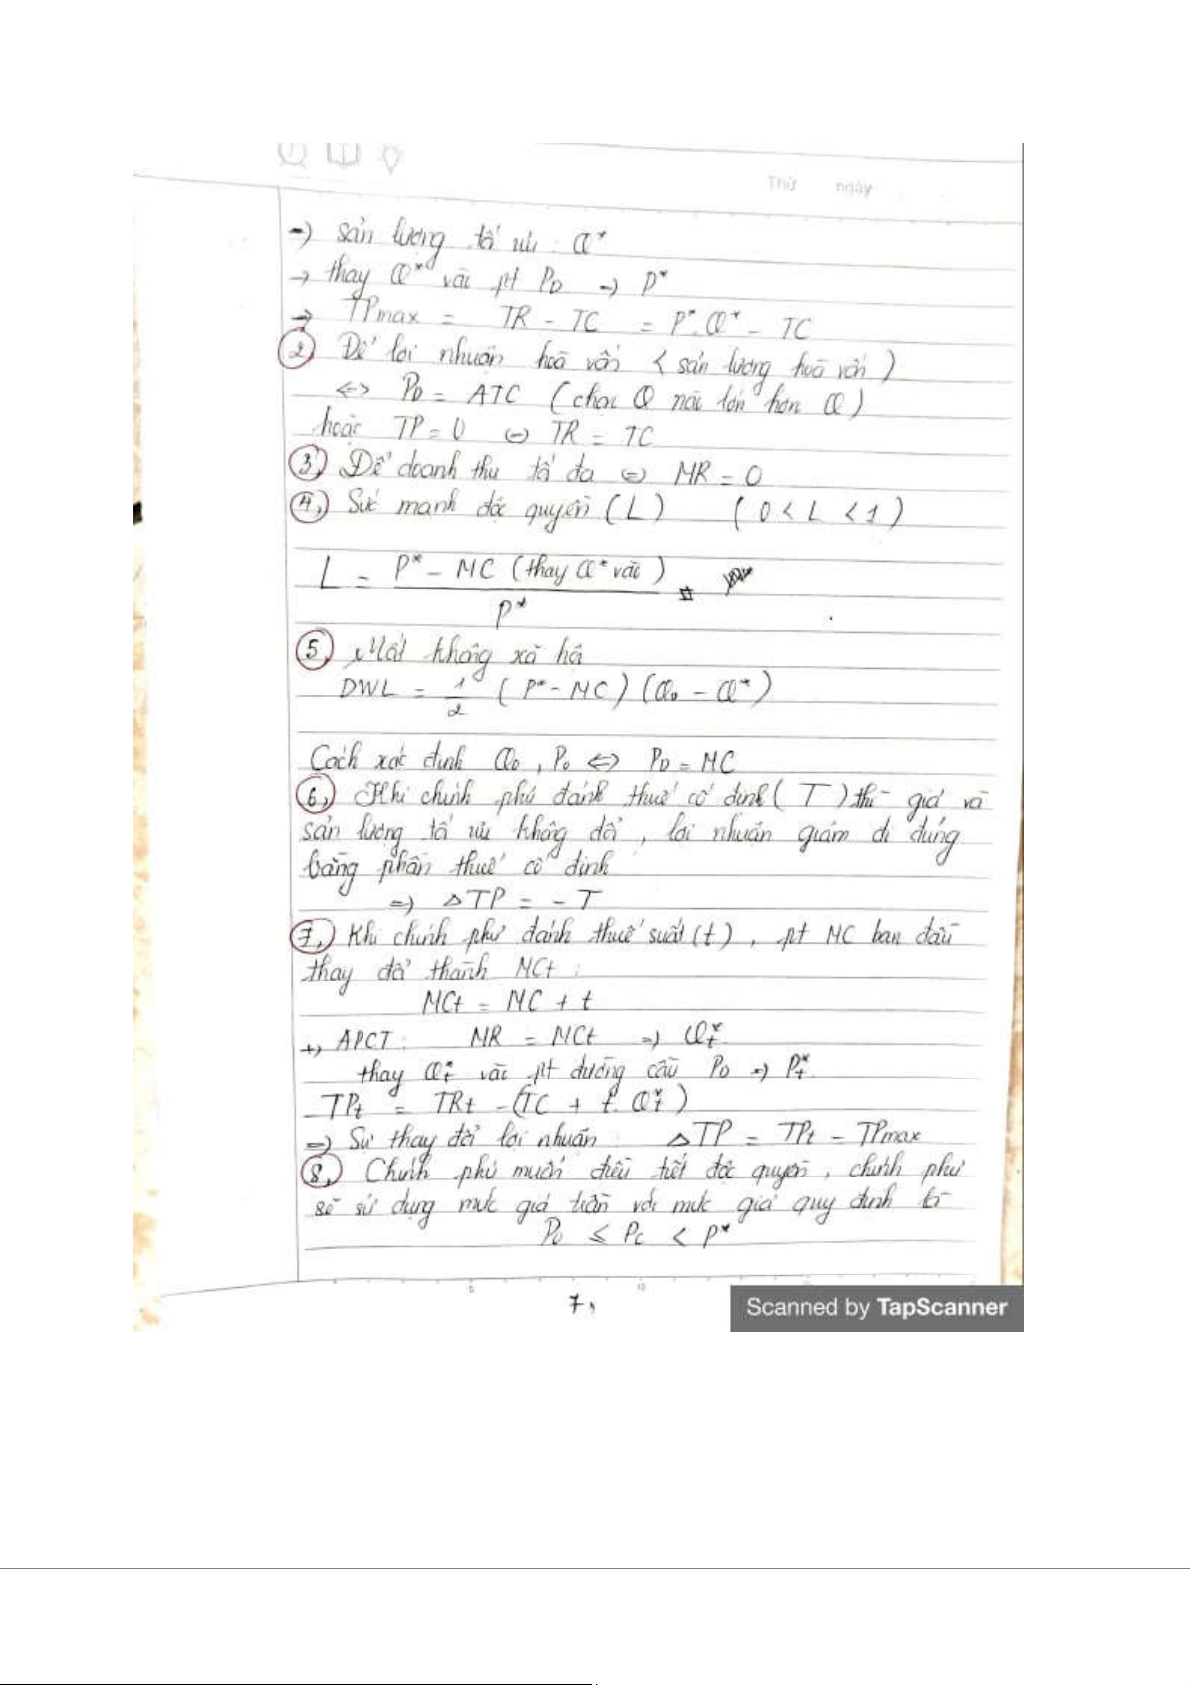 Thứ ngày
=) sản lượng tối ưu : Q*
→ thay Q* vào pt PD =) P*
→ TPmax = TR - TC = P*.Q* - TC
2) Để lợi nhuận hoà vốn ( sản lượng hoà vốn )
<=> PD = ATC ( chọn Q nào lớn hơn Q )
hoặc TP = 0 <=> TR = TC
3) Để doanh thu tối đa <=> MR = 0
4,) Sức mạnh độc quyền ( L ) ( 0 < L < 1 )
L = P* - MC ( thay Q* vào )
P*
5) Mất không xã hội
DWL = 1/2 ( P* - MC ) ( Q0 - Q* )
Cách xác định Q0 , P0 <=> PD = MC
6,) Khi chính phủ đánh thuế cố định ( T ) thì giá và
sản lượng tối ưu không đổi , lợi nhuận giảm đi đúng
bằng phần thuế cố định
=) △TP = - T
7,) Khi chính phủ đánh thuế suất (t) , pt MC ban đầu
thay đổi thành MCt :
MCt = MC + t
+, APCT : MR = MCt =) Qt*
thay Qt* vào pt đường cầu PD =) Pt*
TPt = TRt - (TC + t. Qt* )
=) Sự thay đổi lợi nhuận : △TP = TPt - TPmax
8,) Chính phủ muốn điều tiết độc quyền , chính phủ
sẽ sử dụng mức giá trần với mức giá quy định là
P0 ≤ Pc < P*
5 10
7,
Scanned by TapScanner